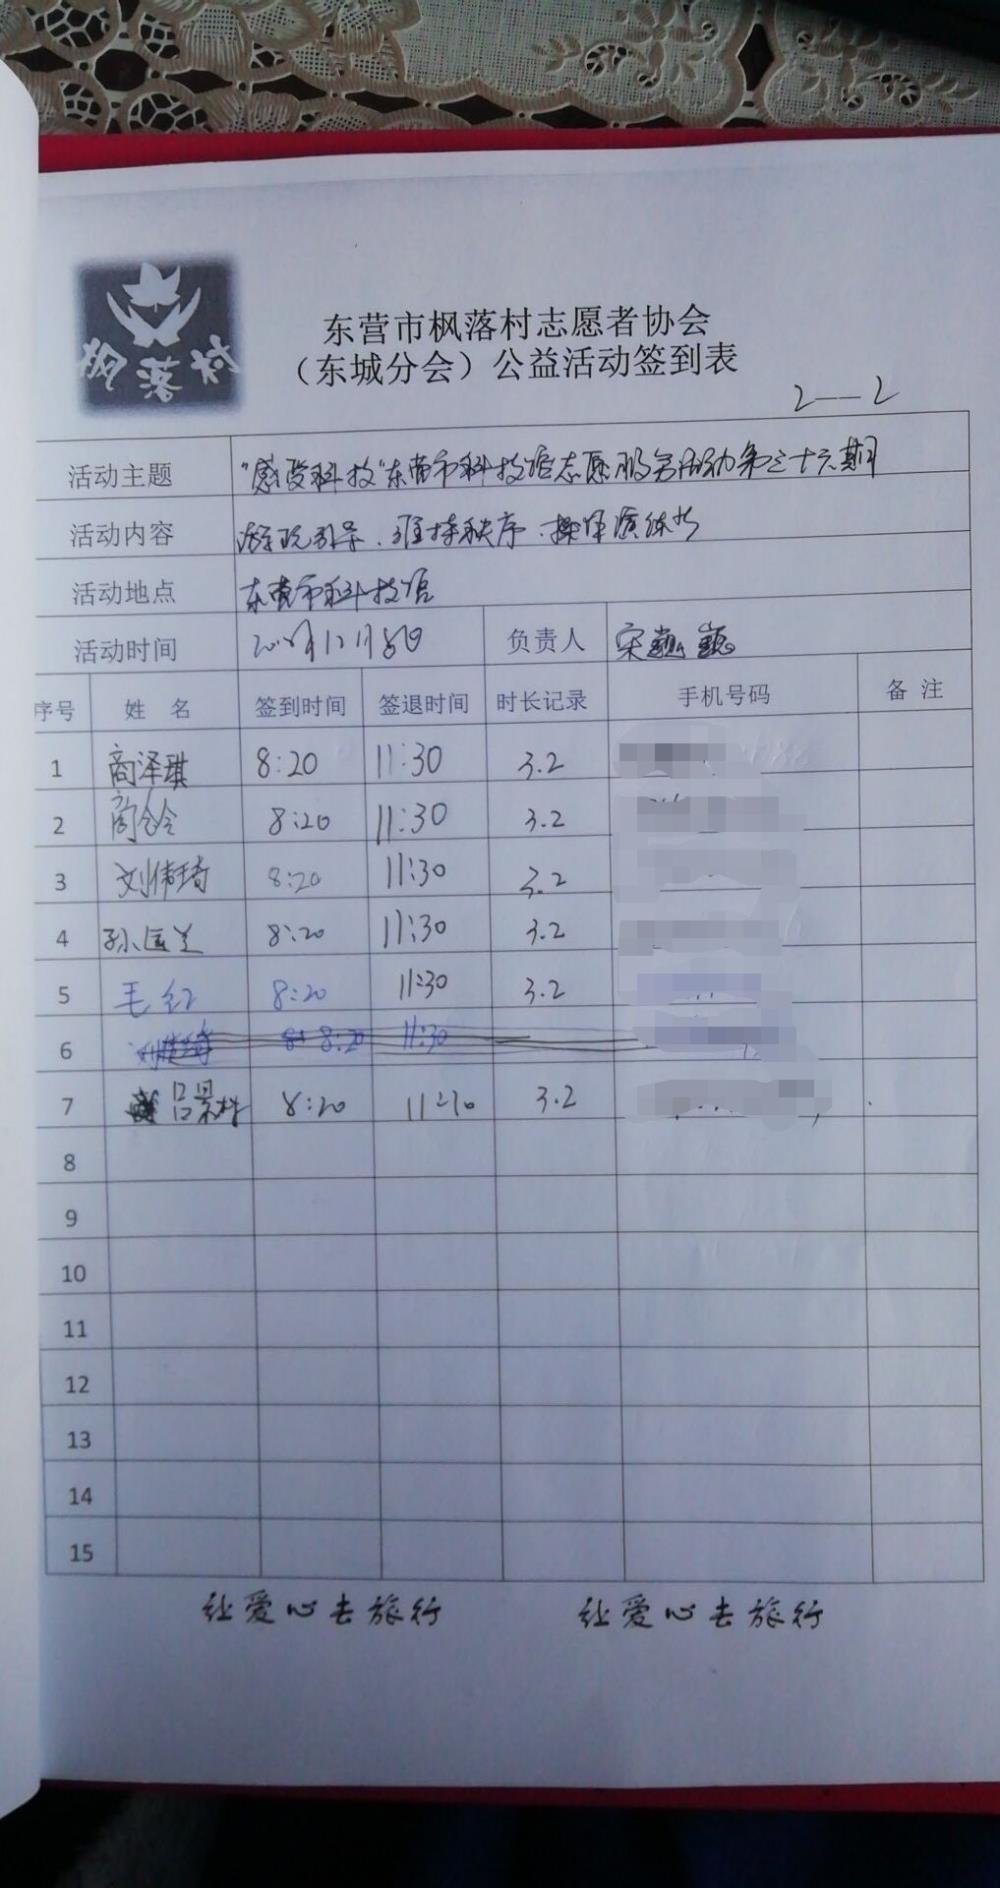 枫落村
东营市枫落村志愿者协会
（东城分会）公益活动签到表
2—2
活动主题 "感受科技"东营市科技馆志愿服务活动第三十六期
活动内容 游玩引导、维持秩序、操作演练等
活动地点 东营市科技馆
活动时间 12月8日 负责人 宋巍巍
序号 姓 名 签到时间 签退时间 时长记录 手机号码 备 注
1 商泽琪 8:20 11:30 3.2
2 8:20 11:30 3.2
3 刘伟琦 8:20 11:30 3.2
4 孙 兰 8:20 11:30 3.2
5 毛红 8:20 11:30 3.2
6 8:20 11:30
7 吕景 8:20 3.2
8
9
10
11
12
13
14
15
让爱心去旅行 让爱心去旅行